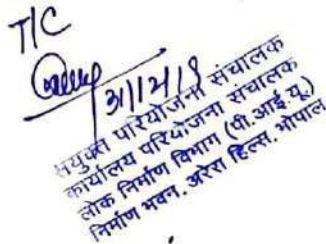 T/C
31/12/18
संयुक्त परियोजना संचालक
कार्यालय परियोजना संचालक
लोक निर्माण विभाग (पी.आई.यू.)
निर्माण भवन, अरेरा हिल्स, भोपाल